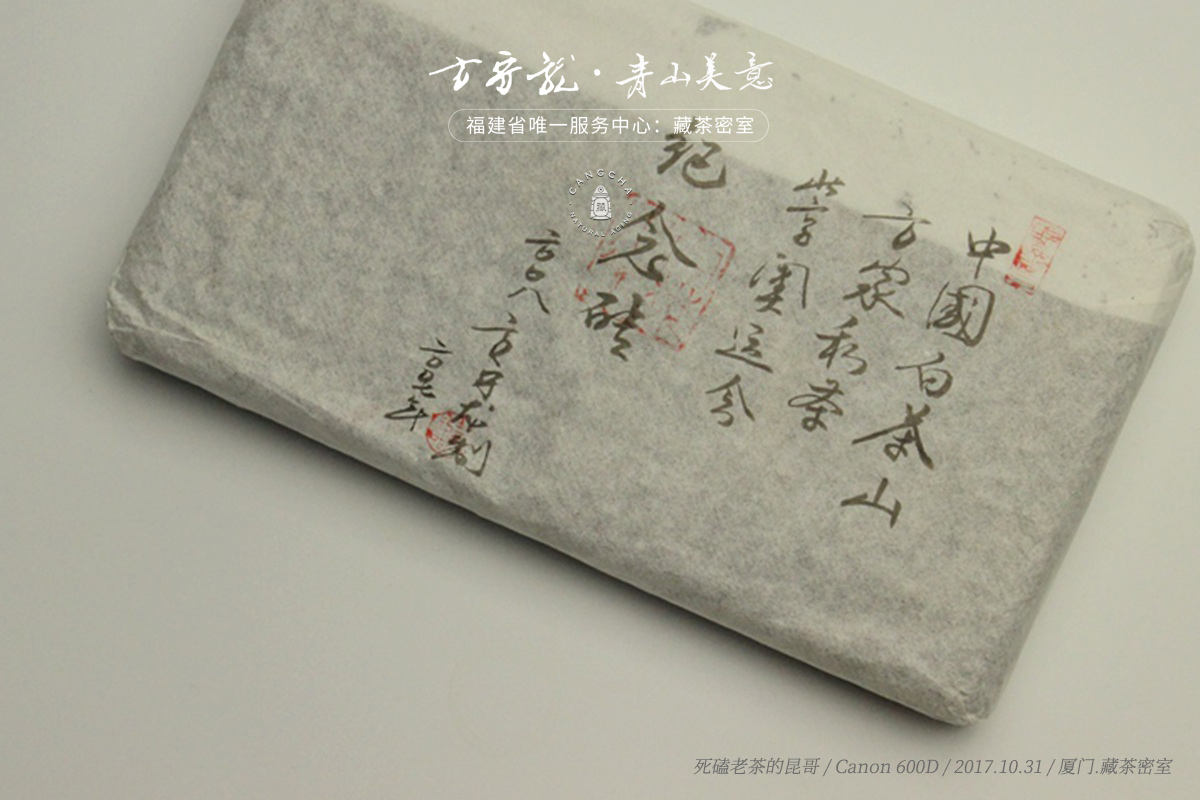 方守龍·青山美意
福建省唯一服务中心：藏茶密室
CANGCHA
NATURAL AGING
中國白茶山
方家私茶
北京奥运会
纪念砖
二〇〇八
方守龙制
二〇〇七年
死磕老茶的昆哥 / Canon 600D / 2017.10.31 / 厦门.藏茶密室